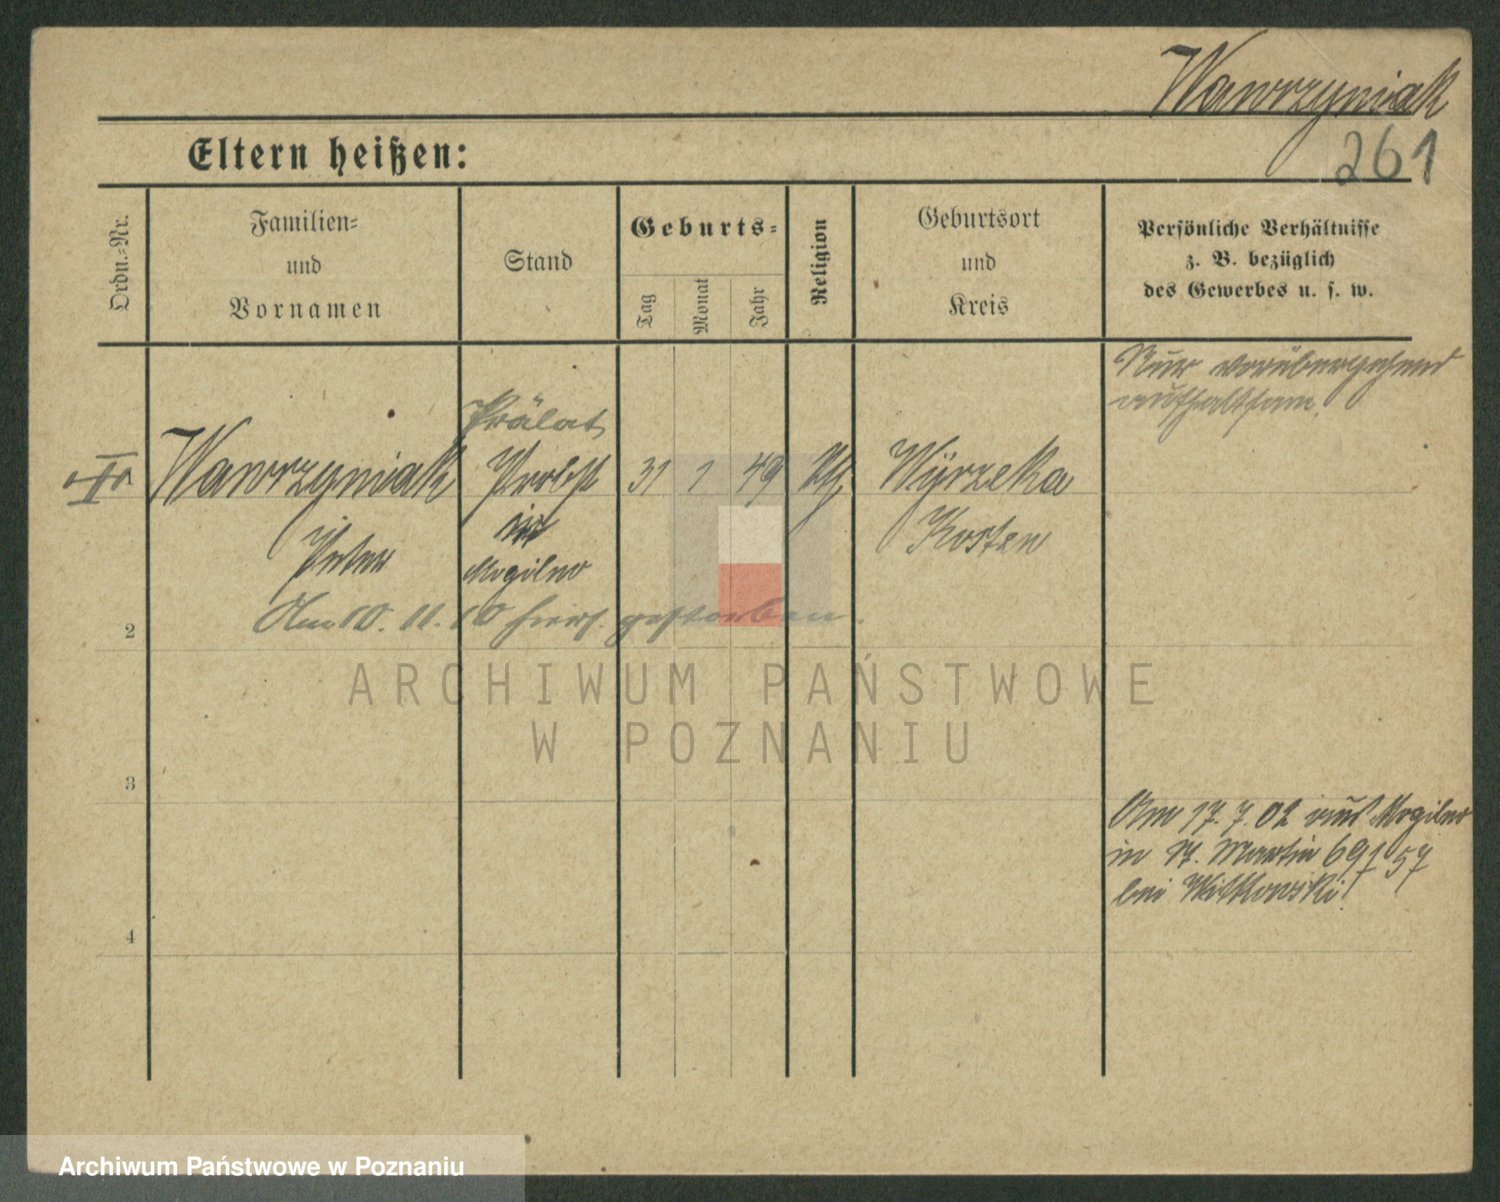 Wawrzyniak
261
Eltern heißen:
Ordn.-Nr.
Familien-
und
Vornamen
Stand
Geburts-
Tag
Monat
Jahr
Religion
Geburtsort
und
Kreis
Persönliche Verhältnisse
z. B. bezüglich
des Gewerbes u. s. w.
Nur vorübergehend
aufhaltsam.
Prälat
Wawrzyniak Probst 31 1 49 Wyrzeka
Peter in Kosten
Mogilno
Am 10. 11. 10 hier gestorben.
2
3
4
Am 17. 7. 02 aus Mogilno
in St. Martin 69 57
bei Witkowski.
ARCHIWUM PAŃSTWOWE
W POZNANIU
Archiwum Państwowe w Poznaniu